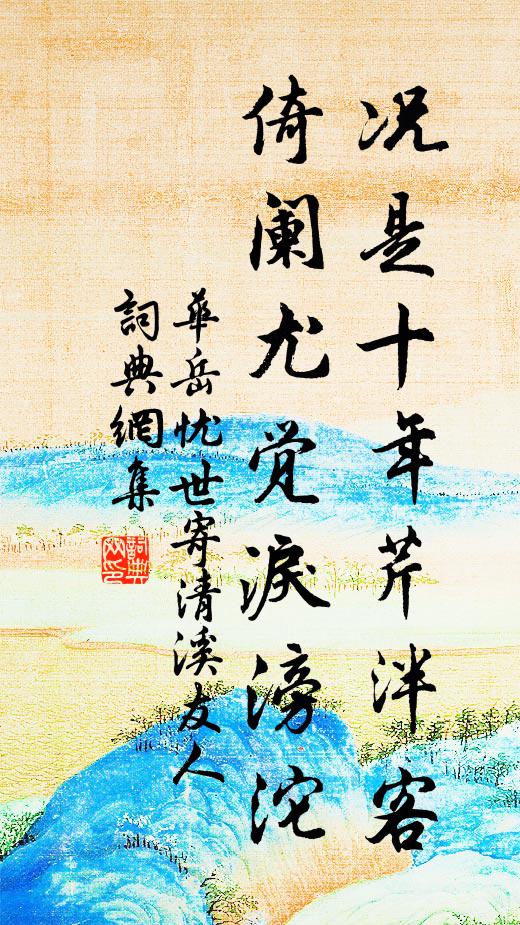 况是十年芹泮客
倚阑尤觉淚滂沱
華岳忧世寄清溪友人
詞典網集